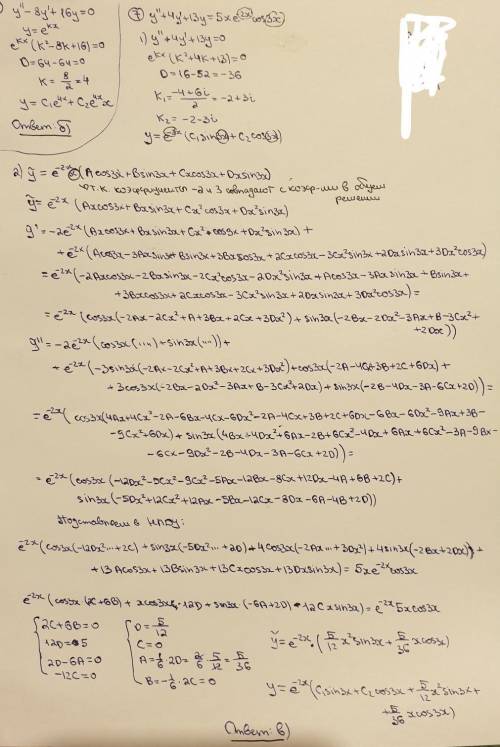 y''-8y'+16y=0
y=e^{kx}
e^{kx}(k²-8k+16)=0
D=64-64=0
k=8/2=4
y=C₁e^{4x}+C₂e^{4x}x
Ответ: б)
⑦ y''+4y'+13y=5xe^{-2x}cos3x
1) y''+4y'+13y=0
e^{kx}(k²+4k+13)=0
D=16-52=-36
k₁=(-4+6i)/2=-2+3i
k₂=-2-3i
y=e^{-2x}(C₁sin3x+C₂cos3x)
2) ỹ=e^{-2x}x(Acos3x+Bsin3x+Cxcos3x+Dxsin3x)
т.к. коэффициенты -2 и 3 совпадают с коэф-ми в общем
решении
ỹ=e^{-2x}(Axcos3x+Bxsin3x+Cx²cos3x+Dx²sin3x)
y'=-2e^{-2x}(Axcos3x+Bxsin3x+Cx²cos3x+Dx²sin3x)+
+e^{-2x}(Acos3x-3Axsin3x+Bsin3x+3Bxcos3x+2Cxcos3x-3Cx²sin3x+2Dxsin3x+3Dx²cos3x)
=e^{-2x}(-2Axcos3x-2Bxsin3x-2Cx²cos3x-2Dx²sin3x+Acos3x-3Axsin3x+Bsin3x+
+3Bxcos3x+2Cxcos3x-3Cx²sin3x+2Dxsin3x+3Dx²cos3x)=
=e^{-2x}(cos3x(-2Ax-2Cx²+A+3Bx+2Cx+3Dx²)+sin3x(-2Bx-2Dx²-3Ax+B-3Cx²+
+2Dx))
y''=-2e^{-2x}(cos3x(....)+sin3x(...))+
+e^{-2x}(-3sin3x(-2Ax-2Cx²+A+3Bx+2Cx+3Dx²)+cos3x(-2A-4Cx+3B+2C+6Dx)+
+3cos3x(-2Bx-2Dx²-3Ax+B-3Cx²+2Dx)+sin3x(-2B-4Dx-3A-6Cx+2D))=
=e^{-2x}(cos3x(4Ax+4Cx²-2A-6Bx-4Cx-6Dx²-2A-4Cx+3B+2C+6Dx-6Bx-6Dx²-9Ax+3B-
-9Cx²+6Dx)+sin3x(4Bx+4Dx²+6Ax-2B+6Cx²-4Dx+6Ax+6Cx²-3A-9Bx-
-6Cx-9Dx²-2B-4Dx-3A-6Cx+2D))=
=e^{-2x}(cos3x(-12Dx²-5Cx²-5Ax-12Bx-8Cx+12Dx-4A+6B+2C)+
sin3x(-5Dx²+12Cx²+12Ax-5Bx-12Cx-8Dx-6A-4B+2D))
Подставляем в
e^{-2x}(cos3x(-12Dx²...+2C)+sin3x(-5Dx²...+2D)+4cos3x(-2Ax...+3Dx²)+4sin3x(-2Bx+2Dx)+
+13Acos3x+13Bsin3x+13Cxcos3x+13Dxsin3x)=5xe^{-2x}cos3x
e^{-2x}(cos3x(2C+6B)+xcos3x·12D+sin3x(-6A+2D)-12Cxsin3x)=e^{-2x}5xcos3x
{2C+6B=0
12D=5
2D-6A=0
-12C=0
{D=5/12
C=0
A=1/6·2D=2/6·5/12=5/36
B=-1/6·2C=0
ỹ=e^{-2x}·(5/12x²sin3x+5/36xcos3x)
y=e^{-2x}(C₁sin3x+C₂cos3x+5/12x²sin3x+
+5/36xcos3x)
Ответ: в)